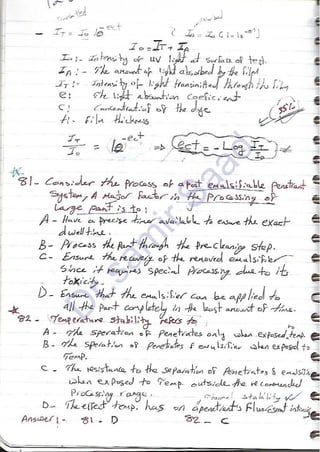 transmitted
absorbed
I_T = I₀ 10^-ect
[ I_A = I₀ (1-10^-ect) ]
I₀ = I_T + I_A
I₀:- Intensity of UV light at surface of test.
I_A :- The amount of light absorbed by the film
I_T :- Intensity of light transmitted through the film
e: the light absorption Coefficient
C: Concentration of the dye
t:- film thickness
I_T / I₀ = 10^-ect => ect = - Log I_T / I₀
81- Consider the Process of a Post emulsifiable Penetrant
System, A Major factor in the Processing of
Large part is to:
A- Have a precise timer available to ensure the exact
dwell time.
B- Process the Part through the Pre-cleaning step.
C- Ensure the recovery of the removed emulsifier
Since it requires special Processing due to its
toxicity.
D- Ensure that the emulsifier can be applied to
all the part completely in the least amount of time.
82- Temperature stability refers to
A- The speration of Penetrates only when exposed temp.
B- The speration of Penetrates & emulsifier when exposed to
Temp.
C- The resistance to the separation of Penetrates & emulsifier
when exposed to Temp outside the recommended
Processing range.
thermal stability
D- The effect temp. has on a penetrant's Fluorescent intensity
Answer:- 81- D 82- C